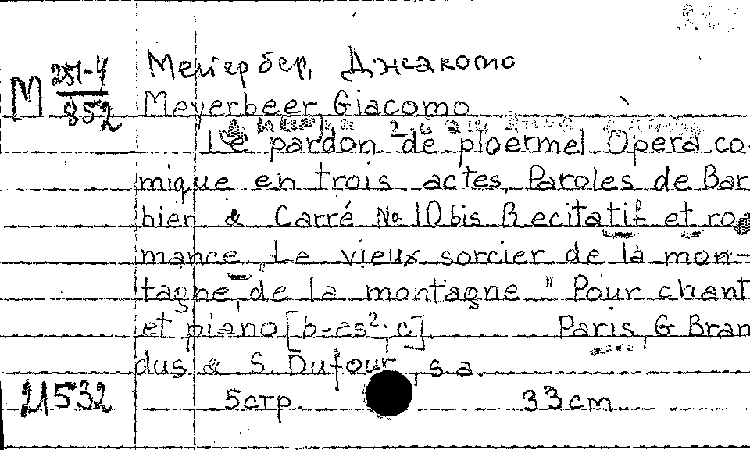 Мейербер, Джакомо
М 251-4
852
Meyerbeer Giacomo
Le pardon de ploermel Opera co-
mique en trois actes, Paroles de Bar
bier & Carré № 10 bis Recitatif et ro
mance „Le vieux sorcier de la mon-
tagne, de la montagne" Pour chant
et piano [b-es²·c]. Paris, G Bran
dus & S. Dufour, s.a.
21532 5 стр. 33 cm